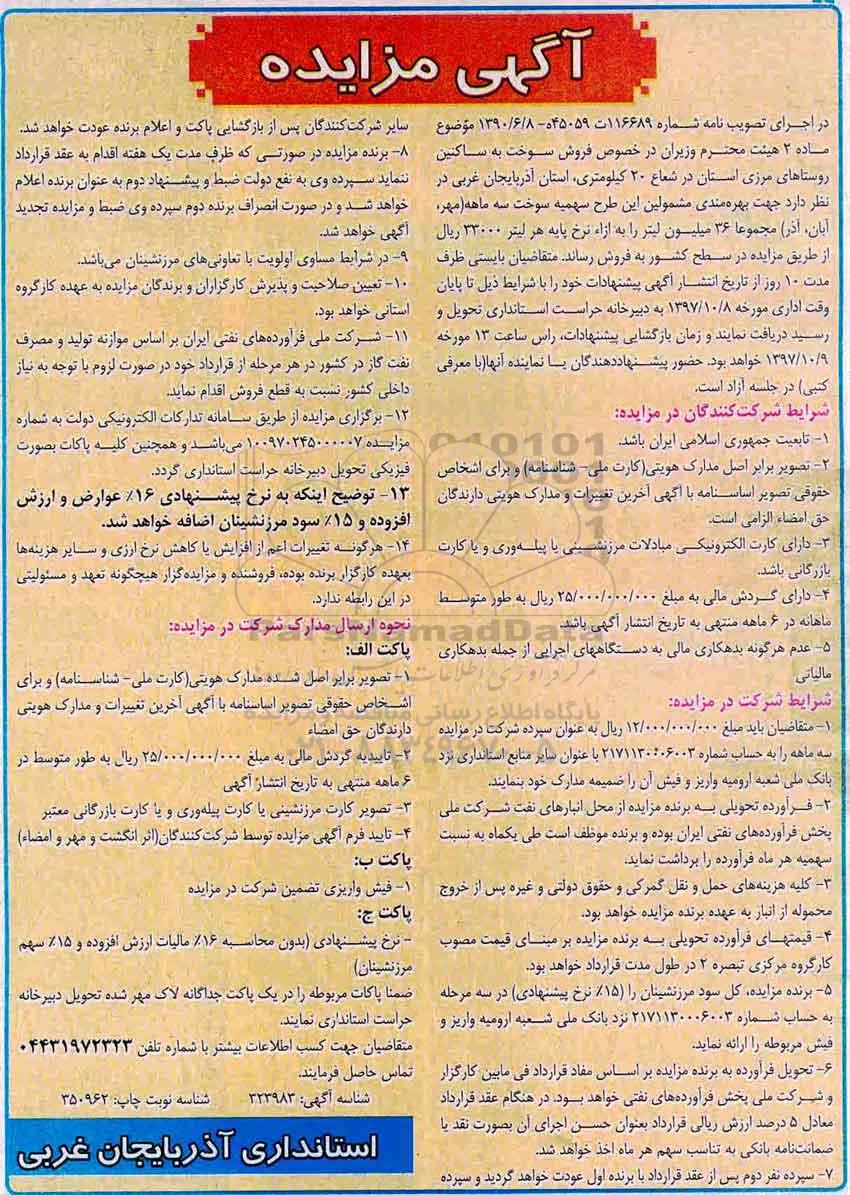 آگهی مزایده
در اجرای تصویب نامه شماره ۱۱۶۶۸۹ت ۴۵۰۵۹ه- ۱۳۹۰/۶/۸ موضوع
ماده ۲ هیئت محترم وزیران در خصوص فروش سوخت به ساکنین
روستاهای مرزی استان در شعاع ۲۰ کیلومتری، استان آذربایجان غربی در
نظر دارد جهت بهره‌مندی مشمولین این طرح سهمیه سوخت سه ماهه(مهر،
آبان، آذر) مجموعا ۳۶ میلیون لیتر را به ازاء نرخ پایه هر لیتر ۳۳۰۰۰ ریال
از طریق مزایده در سطح کشور به فروش رساند. متقاضیان بایستی ظرف
مدت ۱۰ روز از تاریخ انتشار آگهی پیشنهادات خود را با شرایط ذیل تا پایان
وقت اداری مورخه ۱۳۹۷/۱۰/۸ به دبیرخانه حراست استانداری تحویل و
رسید دریافت نمایند و زمان بازگشایی پیشنهادات، راس ساعت ۱۳ مورخه
۱۳۹۷/۱۰/۹ خواهد بود. حضور پیشنهاددهندگان یا نماینده آنها(با معرفی
کتبی) در جلسه آزاد است.
شرایط شرکت‌کنندگان در مزایده:
۱- تابعیت جمهوری اسلامی ایران باشد.
۲- تصویر برابر اصل مدارک هویتی(کارت ملی- شناسنامه) و برای اشخاص
حقوقی تصویر اساسنامه با آگهی آخرین تغییرات و مدارک هویتی دارندگان
حق امضاء الزامی است.
۳- دارای کارت الکترونیکی مبادلات مرزنشینی یا پیله‌وری و یا کارت
بازرگانی باشد.
۴- دارای گردش مالی به مبلغ ۲۵/۰۰۰/۰۰۰/۰۰۰ ریال به طور متوسط
ماهانه در ۶ ماهه منتهی به تاریخ انتشار آگهی باشد.
۵- عدم هرگونه بدهکاری مالی به دستگاههای اجرایی از جمله بدهکاری
مالیاتی
شرایط شرکت در مزایده:
۱- متقاضیان باید مبلغ ۱۲/۰۰۰/۰۰۰/۰۰۰ ریال به عنوان سپرده شرکت در مزایده
سه ماهه را به حساب شماره ۲۱۷۱۱۳۰۰۰۶۰۰۳ با عنوان سایر منابع استانداری نزد
بانک ملی شعبه ارومیه واریز و فیش آن را ضمیمه مدارک خود بنمایند.
۲- فرآورده تحویلی به برنده مزایده از محل انبارهای نفت شرکت ملی
پخش فرآورده‌های نفتی ایران بوده و برنده موظف است طی یکماه به نسبت
سهمیه هر ماه فرآورده را برداشت نماید.
۳- کلیه هزینه‌های حمل و نقل گمرکی و حقوق دولتی و غیره پس از خروج
محموله از انبار به عهده برنده مزایده خواهد بود.
۴- قیمتهای فرآورده تحویلی به برنده مزایده بر مبنای قیمت مصوب
کارگروه مرکزی تبصره ۲ در طول مدت قرارداد خواهد بود.
۵- برنده مزایده، کل سود مرزنشینان را (۱۵٪ نرخ پیشنهادی) در سه مرحله
به حساب شماره ۲۱۷۱۱۳۰۰۰۶۰۰۳ نزد بانک ملی شعبه ارومیه واریز و
فیش مربوطه را ارائه نماید.
۶- تحویل فرآورده به برنده مزایده بر اساس مفاد قرارداد فی مابین کارگزار
و شرکت ملی پخش فرآورده‌های نفتی خواهد بود. در هنگام عقد قرارداد
معادل ۵ درصد ارزش ریالی قرارداد بعنوان حسن اجرای آن بصورت نقد یا
ضمانت‌نامه بانکی به تناسب سهم هر ماه اخذ خواهد شد.
۷- سپرده نفر دوم پس از عقد قرارداد با برنده اول عودت خواهد گردید و سپرده
سایر شرکت‌کنندگان پس از بازگشایی پاکت و اعلام برنده عودت خواهد شد.
۸- برنده مزایده در صورتی که ظرف مدت یک هفته اقدام به عقد قرارداد
ننماید سپرده وی به نفع دولت ضبط و پیشنهاد دوم به عنوان برنده اعلام
خواهد شد و در صورت انصراف برنده دوم سپرده وی ضبط و مزایده تجدید
آگهی خواهد شد.
۹- در شرایط مساوی اولویت با تعاونی‌های مرزنشینان می‌باشد.
۱۰- تعیین صلاحیت و پذیرش کارگزاران و برندگان مزایده به عهده کارگروه
استانی خواهد بود.
۱۱- شرکت ملی فرآورده‌های نفتی ایران بر اساس موازنه تولید و مصرف
نفت گاز در کشور در هر مرحله از قرارداد خود در صورت لزوم با توجه به نیاز
داخلی کشور نسبت به قطع فروش اقدام نماید.
۱۲- برگزاری مزایده از طریق سامانه تدارکات الکترونیکی دولت به شماره
مزایده ۱۰۰۹۷۰۲۴۵۰۰۰۰۰۷ می‌باشد و همچنین کلیه پاکات بصورت
فیزیکی تحویل دبیرخانه حراست استانداری گردد.
۱۳- توضیح اینکه به نرخ پیشنهادی ۱۶٪ عوارض و ارزش
افزوده و ۱۵٪ سود مرزنشینان اضافه خواهد شد.
۱۴- هرگونه تغییرات اعم از افزایش یا کاهش نرخ ارزی و سایر هزینه‌ها
بعهده کارگزار برنده بوده، فروشنده و مزایده‌گزار هیچگونه تعهد و مسئولیتی
در این رابطه ندارد.
نحوه ارسال مدارک شرکت در مزایده:
پاکت الف:
۱- تصویر برابر اصل شده مدارک هویتی(کارت ملی- شناسنامه) و برای
اشخاص حقوقی تصویر اساسنامه با آگهی آخرین تغییرات و مدارک هویتی
دارندگان حق امضاء
۲- تاییدیه گردش مالی به مبلغ ۲۵/۰۰۰/۰۰۰/۰۰۰ ریال به طور متوسط در
۶ ماهه منتهی به تاریخ انتشار آگهی
۳- تصویر کارت مرزنشینی یا کارت پیله‌وری و یا کارت بازرگانی معتبر
۴- تایید فرم آگهی مزایده توسط شرکت‌کنندگان(اثر انگشت و مهر و امضاء)
پاکت ب:
۱- فیش واریزی تضمین شرکت در مزایده
پاکت ج:
- نرخ پیشنهادی (بدون محاسبه ۱۶٪ مالیات ارزش افزوده و ۱۵٪ سهم
مرزنشینان)
ضمنا پاکات مربوطه را در یک پاکت جداگانه لاک مهر شده تحویل دبیرخانه
حراست استانداری نمایند.
متقاضیان جهت کسب اطلاعات بیشتر با شماره تلفن ۰۴۴۳۱۹۷۲۳۲۳
تماس حاصل فرمایند.
شناسه آگهی: ۳۲۳۹۸۳ شناسه نوبت چاپ: ۳۵۰۹۶۲
استانداری آذربایجان غربی